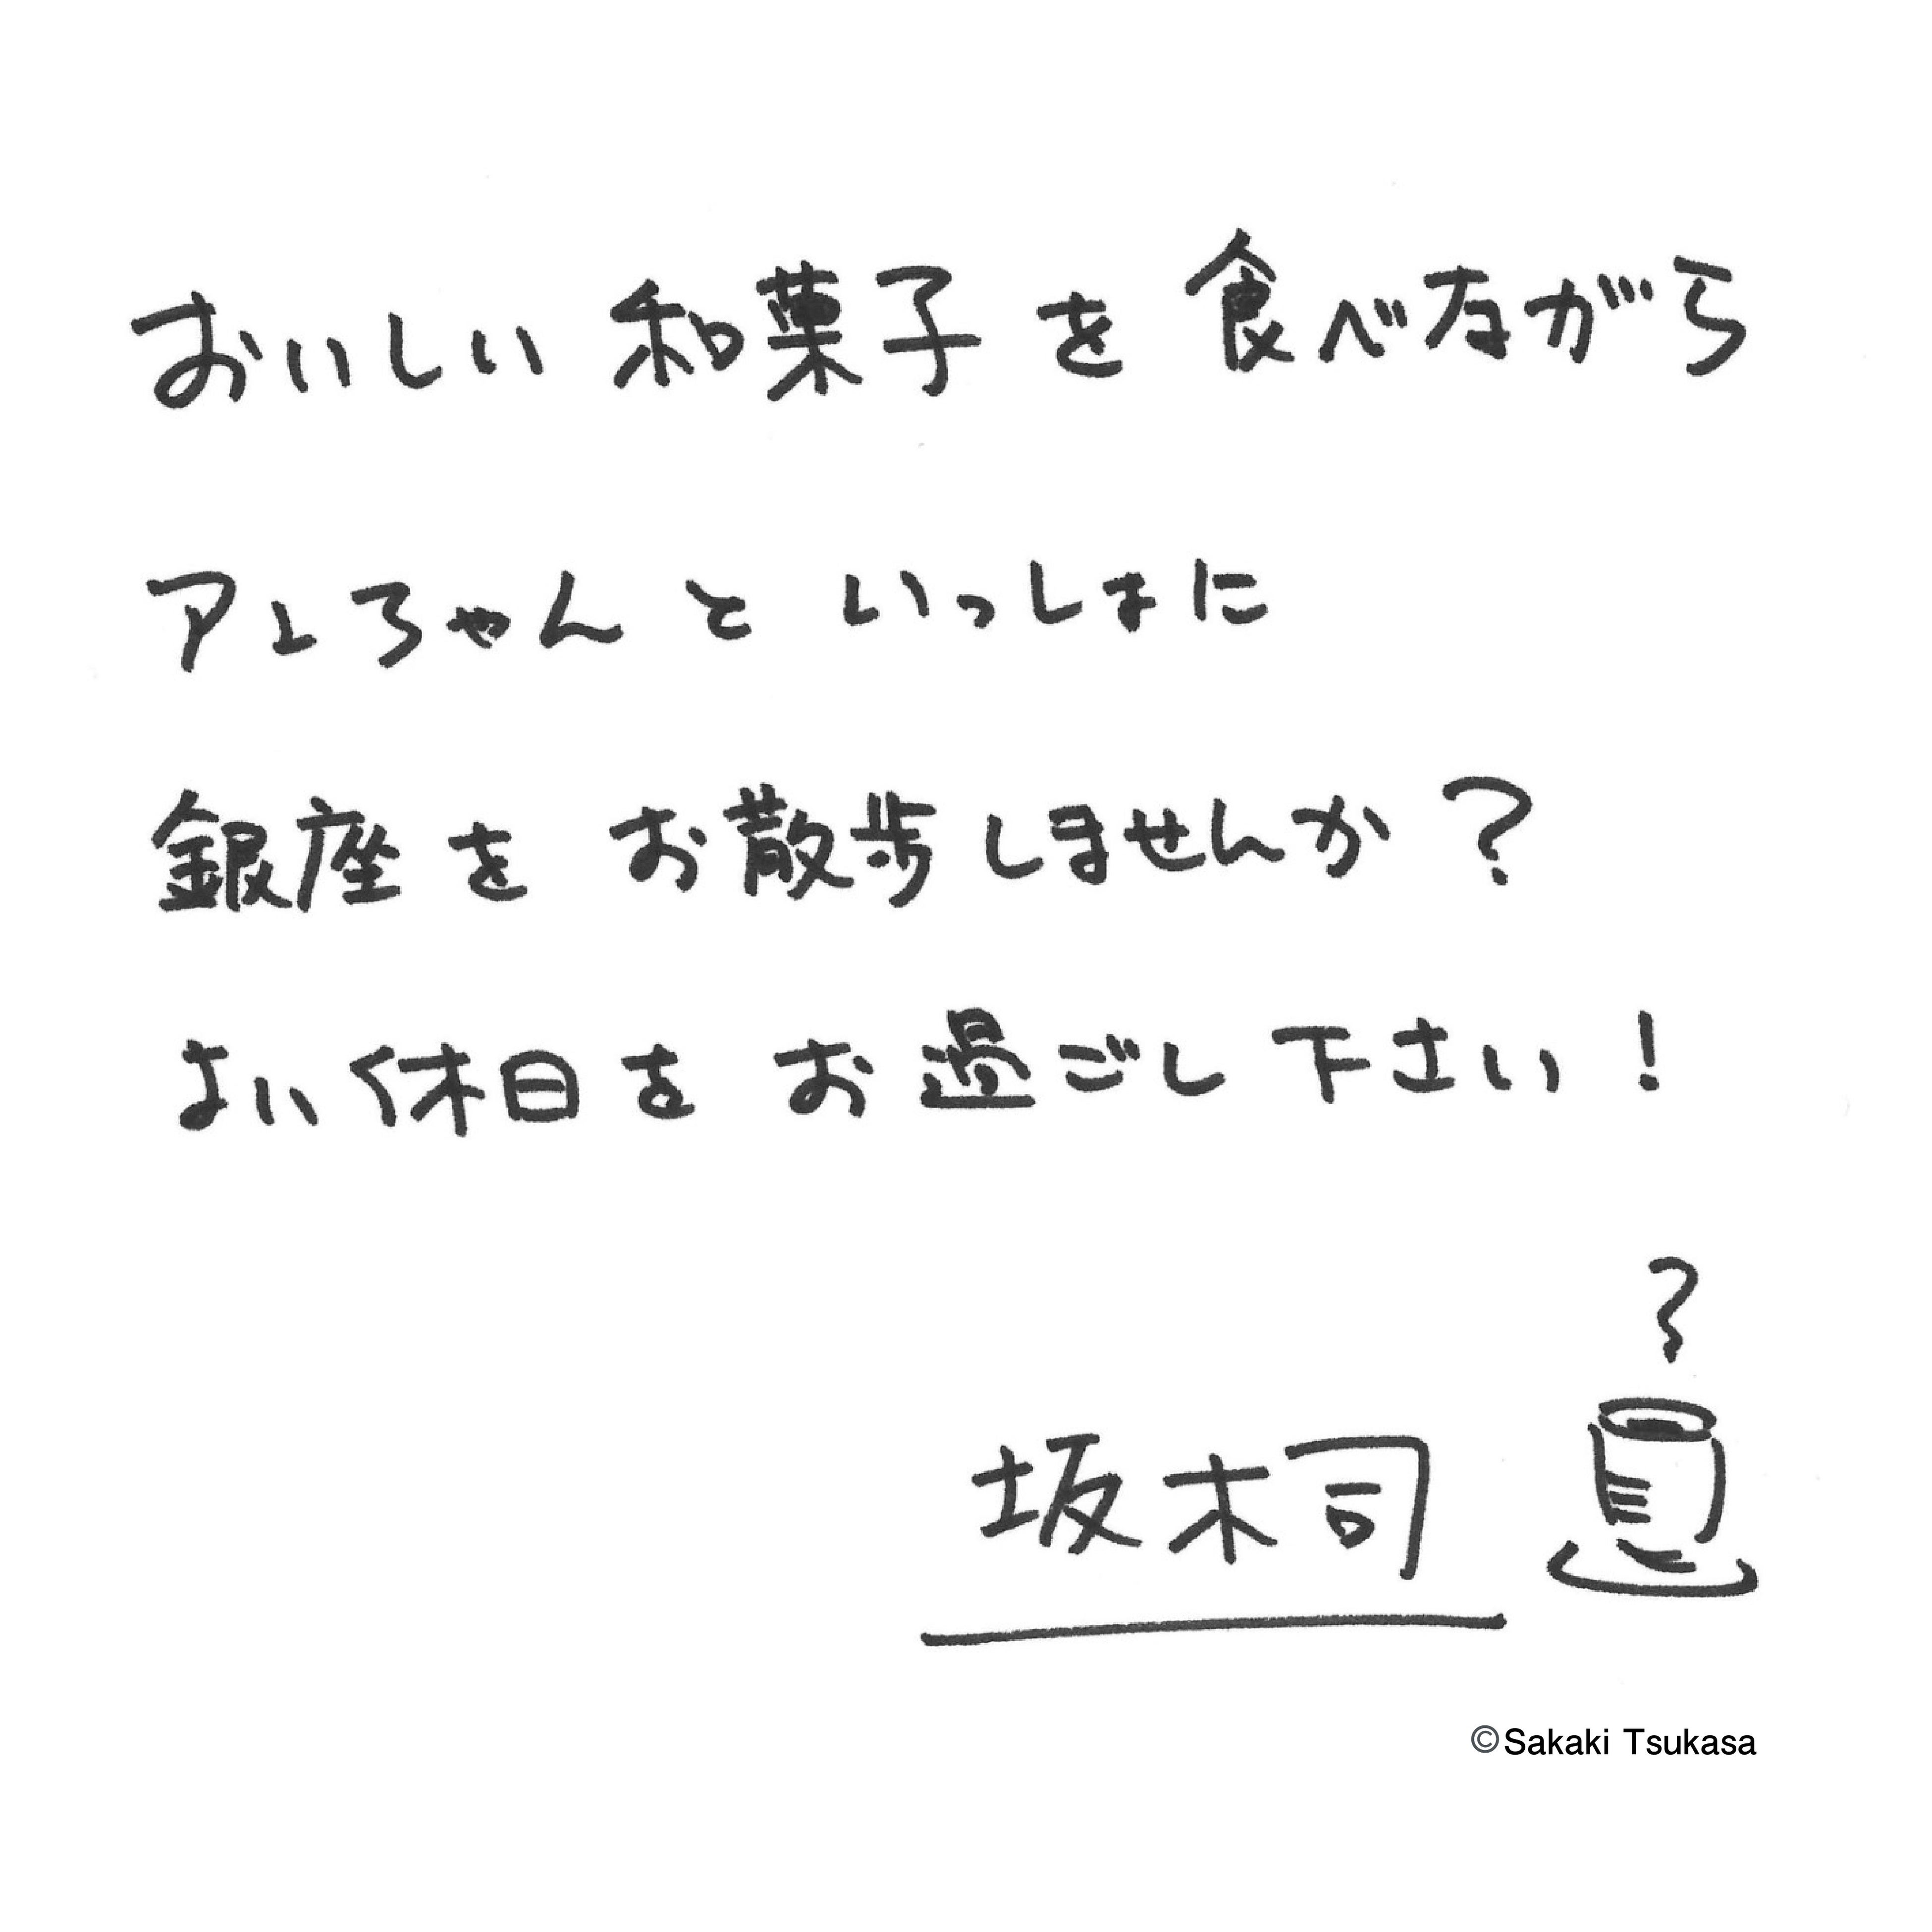 おいしい 和菓子 を 食べながら
アンちゃん と いっしょに
銀座 を お散歩しませんか?
よい休日を お過ごし下さい!
坂木司
©Sakaki Tsukasa